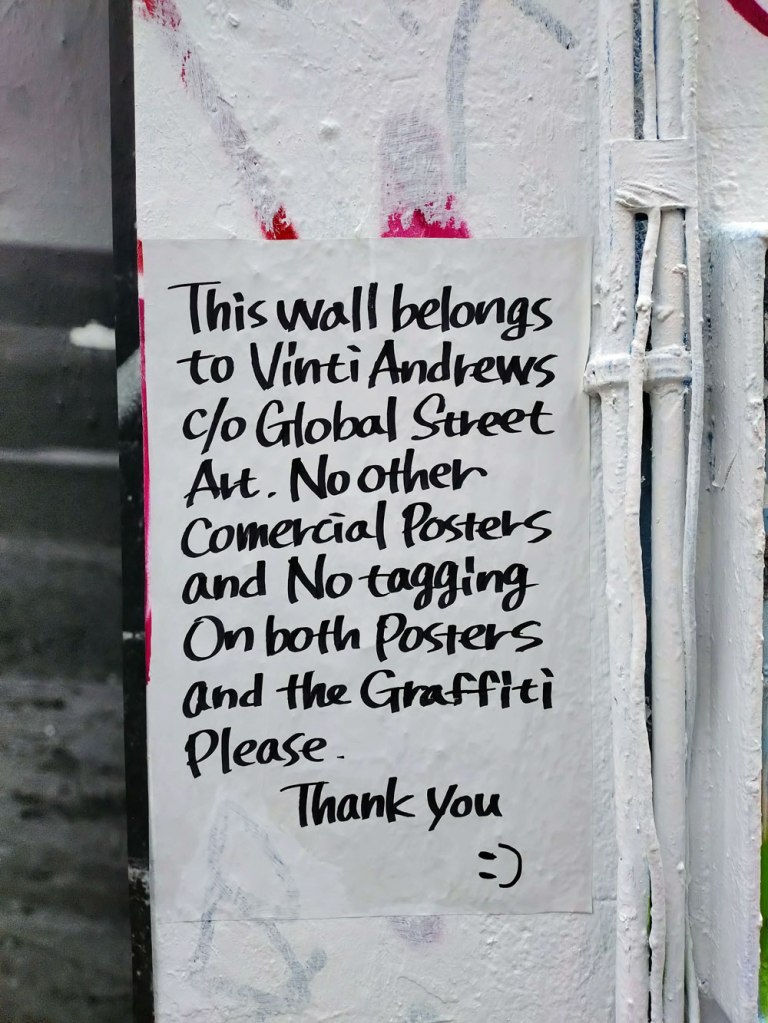 This wall belongs
to Vinti Andrews
c/o Global Street
Art. No other
Comercial Posters
and No tagging
On both Posters
and the Graffiti
Please.
Thank You
:)